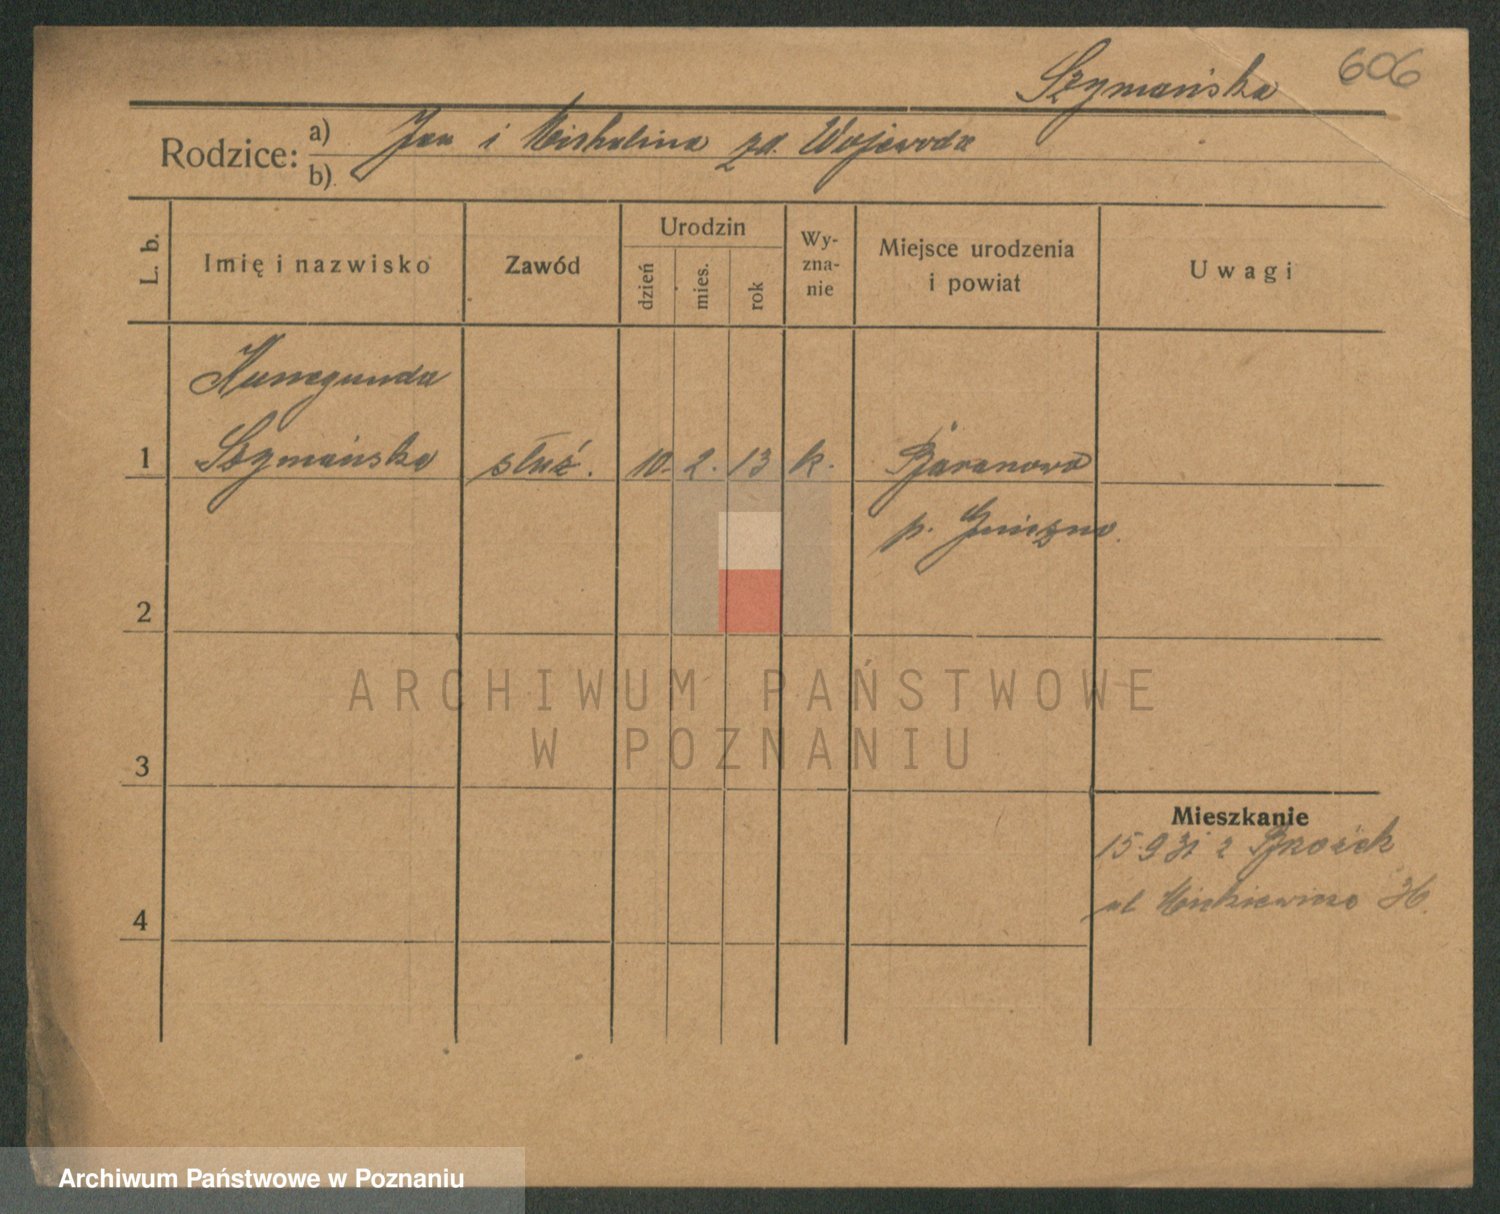 Szymańska 606
Rodzice: a) Jan i Michalina zd. Wojewoda
b)
L. b. Imię i nazwisko Zawód Urodzin dzień mies. rok Wy-zna-nie Miejsce urodzenia i powiat Uwagi
Kunegunda
1 Szymańska służ. 10. 2. 13 k. Baranowo
p. Gniezno.
2
ARCHIWUM PAŃSTWOWE
W POZNANIU
3
Mieszkanie
15.9.31 z Brożek
ul Mickiewicza 36.
4
Archiwum Państwowe w Poznaniu